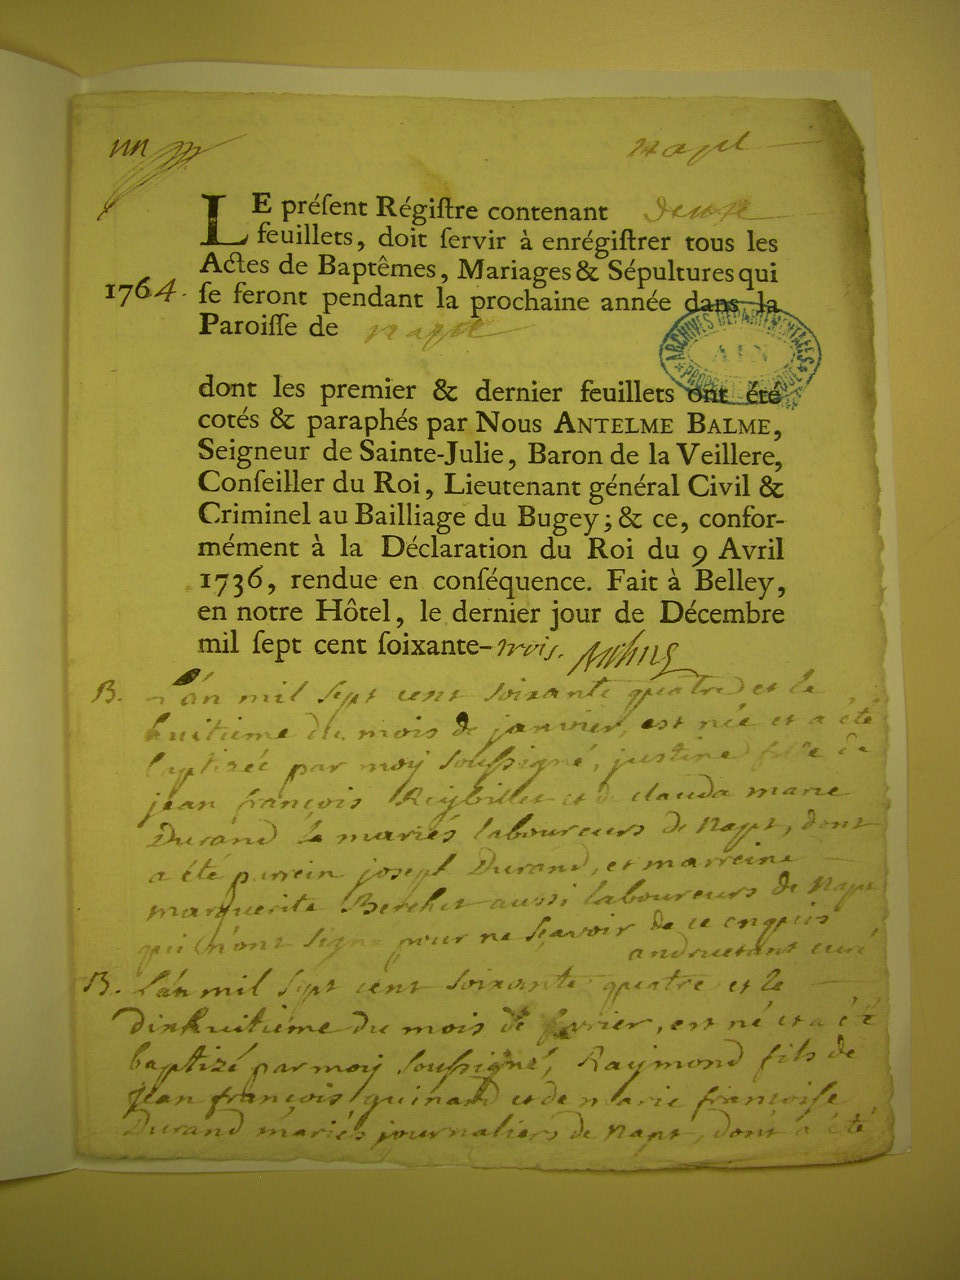 un
napt
LE préſent Régiſtre contenant deux
feuillets, doit ſervir à enrégiſtrer tous les
Actes de Baptêmes, Mariages & Sépultures qui
1764. ſe feront pendant la prochaine année dans la
Paroiſſe de napt
ARCHIVES DEPARTEMENTALES
AIN
PROPRIETE PUBLIQUE
dont les premier & dernier feuillets ont été
cotés & paraphés par Nous ANTELME BALME,
Seigneur de Sainte-Julie, Baron de la Veillere,
Conſeiller du Roi, Lieutenant général Civil &
Criminel au Bailliage du Bugey; & ce, confor-
mément à la Déclaration du Roi du 9 Avril
1736, rendue en conſéquence. Fait à Belley,
en notre Hôtel, le dernier jour de Décembre
mil ſept cent ſoixante-trois.
B. L'an mil sept cent soixante quatre et le
huitieme du mois de janvier, est née et a été
baptizée par moy soussigné, justine fille de
jean françois Reybillet et de clauda marie
Durand mariés laboureurs de napt, dont
a été parrein joseph Durand, et marreine
marguerite Berchet aussi laboureurs de napt
qui n'ont signé pour ne sçavoir de ce enquis
curé
B. L'an mil sept cent soixante quatre et le
dixhuitieme du mois de fevrier, est né et a été
baptizé par moy soussigné, Raymond fils de
Jean françois guinard et de marie françoise
Durand mariés journaliers de napt, dont a été